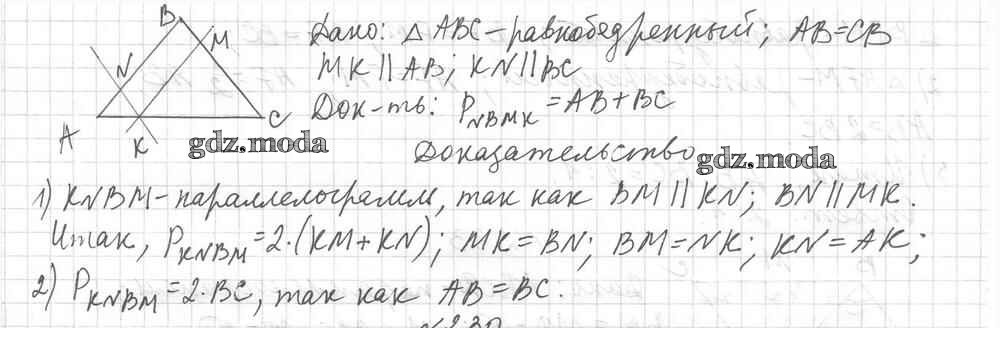 B
M
N
A
K
C
Дано: △ ABC – равнобедренный; AB=CB
MK || AB; KN || BC
Док-ть: P_NBMK = AB+BC
gdz.moda
Доказательство
gdz.moda
1) KNBM – параллелограмм, так как BM || KN; BN || MK.
Итак, P_KNBM = 2·(KM+KN); MK=BN; BM=NK; KN=AK;
2) P_KNBM = 2·BC, так как AB=BC.